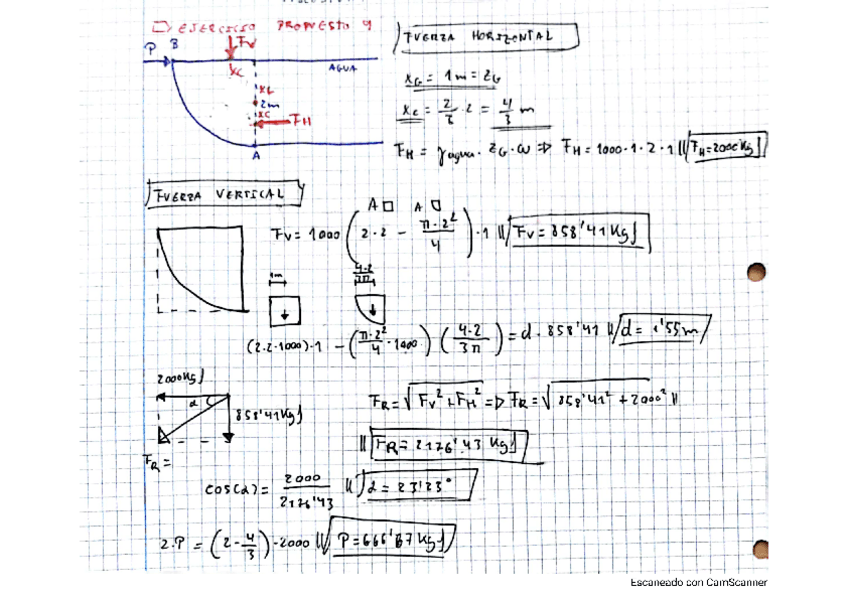 EJERCICIO PROPUESTO 9
P B Fv
AGUA
xc
xG
2m
xc
FH
A
FUERZA HORIZONTAL
xG = 1m = zG
xc = 2/3 · 2 = 4/3 m
FH = γagua · zG · ω => FH = 1000·1·2·1 || FH=2000Kgf
FUERZA VERTICAL
A□ A◹
Fv = 1000 (2·2 - π·2²/4) · 1 || Fv = 858'41 Kgf
1m 4·2/3π
(2·2·1000)·1 - (π·2²/4 · 1000) (4·2/3π) = d · 858'41 || d = 1'55m
2000Kgf
α
858'41Kgf
FR =
FR = √Fv² + FH² => FR = √858'41² + 2000² ||
|| FR = 2176'43 Kgf
cos(α) = 2000/2176'43 || α = 23'23°
2·P = (2 - 4/3) · 2000 || P = 666'67 Kgf
Escaneado con CamScanner